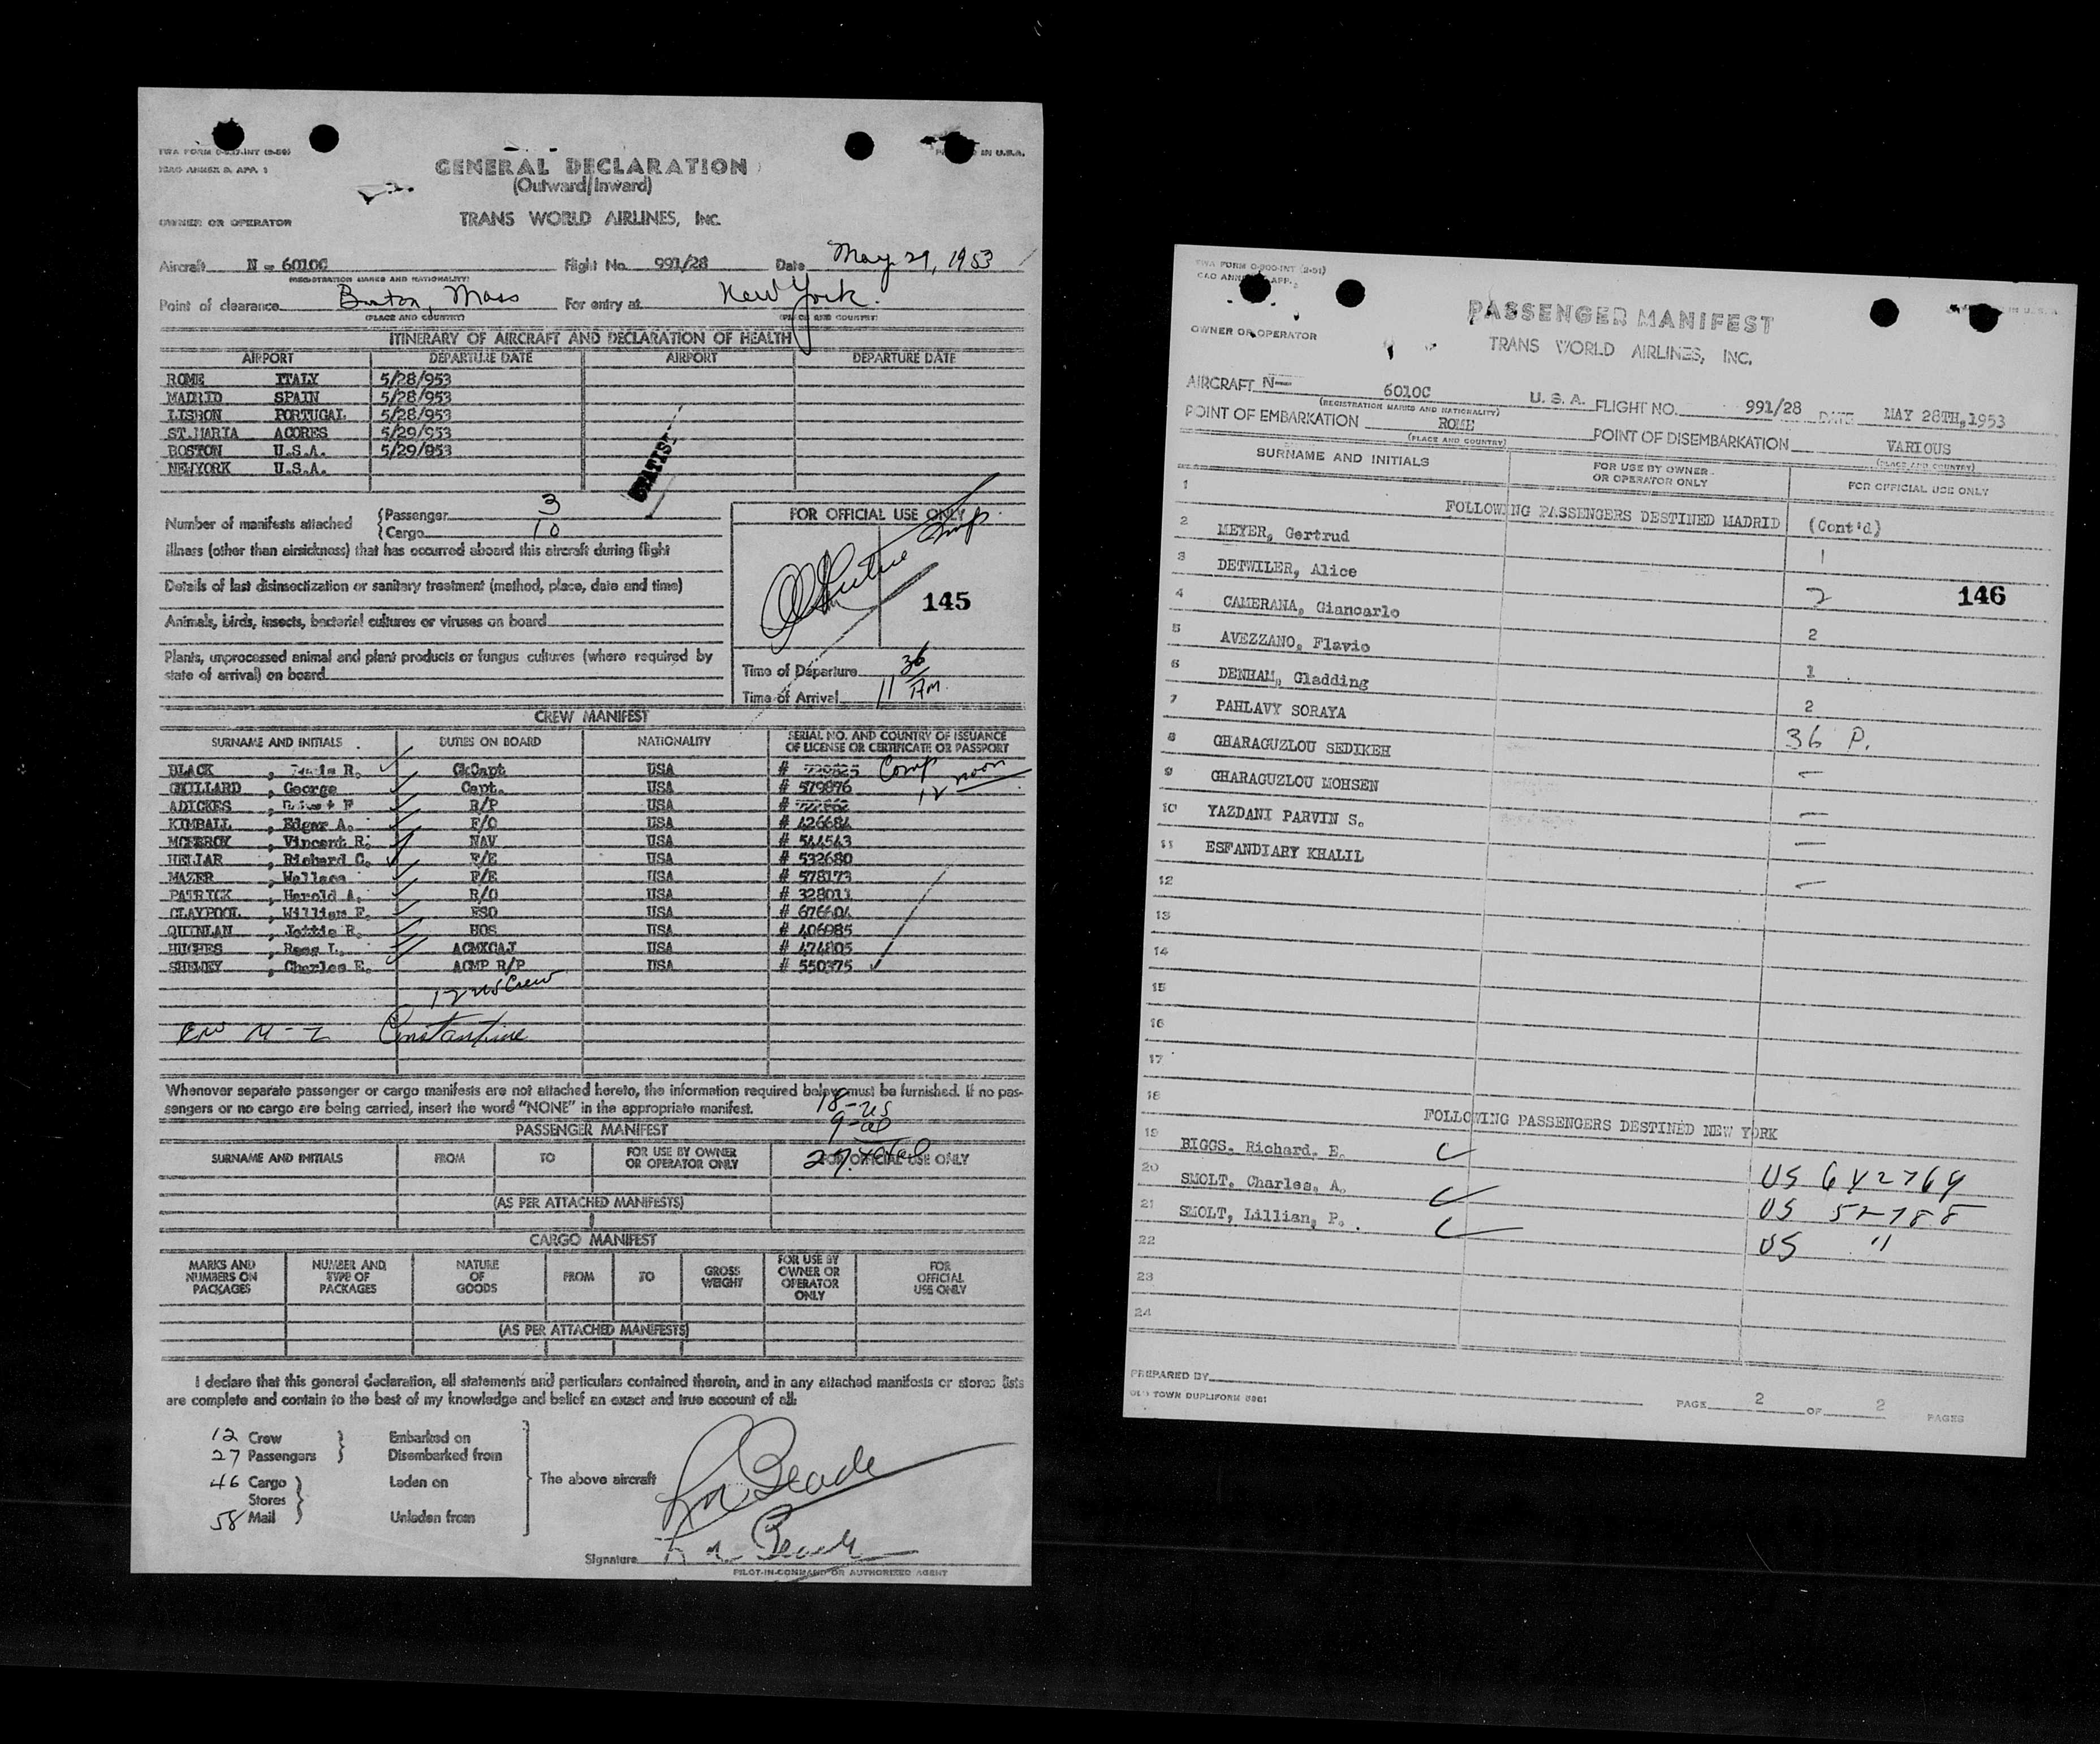 TWA FORM
ICAO ANNEX 9, APP. 1
IN U.S.A.
GENERAL DECLARATION
(Outward/Inward)
OWNER OR OPERATOR TRANS WORLD AIRLINES, INC.
Aircraft N - 6010C Flight No. 991/28 Date May 29, 1953
(REGISTRATION MARKS AND NATIONALITY)
Point of clearance Boston, Mass For entry at New York.
(PLACE AND COUNTRY) (PLACE AND COUNTRY)
ITINERARY OF AIRCRAFT AND DECLARATION OF HEALTH
AIRPORT DEPARTURE DATE AIRPORT DEPARTURE DATE
ROME ITALY 5/28/953
MADRID SPAIN 5/28/953
LISBON PORTUGAL 5/28/953
ST.MARIA ACORES 5/29/953
BOSTON U.S.A. 5/29/953
NEWYORK U.S.A.
Number of manifests attached {Passenger 3
{Cargo 10
Illness (other than airsickness) that has occurred aboard this aircraft during flight
Details of last disinsectization or sanitary treatment (method, place, date and time)
Animals, birds, insects, bacterial cultures or viruses on board
Plants, unprocessed animal and plant products or fungus cultures (where required by
state of arrival) on board
FOR OFFICIAL USE ONLY
145
Time of Departure
Time of Arrival 11 36 AM.
CREW MANIFEST
SURNAME AND INITIALS DUTIES ON BOARD NATIONALITY SERIAL NO. AND COUNTRY OF ISSUANCE
OF LICENSE OR CERTIFICATE OR PASSPORT
BLACK , R. CkCapt USA # Comp
12 noon
, George Capt. USA # 579876
ADICKES , R/P USA #
KIMBALL , Edgar A. F/O USA # 426684
, Vincent R. NAV USA # 544543
HELJAR , Richard C. F/E USA # 532680
MAZER , Wallace F/E USA # 578173
PATRICK , Harold A. R/O USA # 328011
CLAYPOOL , William F. FSO USA # 676604
QUINLAN , Jettie R. HOS USA # 406985
HUGHES , Ross L. ACMXCAJ USA # 474805
, Charles E. ACMP R/P USA # 550375
12 US Crew
Constantine
Whenever separate passenger or cargo manifests are not attached hereto, the information required below must be furnished. If no pas-
sengers or no cargo are being carried, insert the word "NONE" in the appropriate manifest.
18-US
9-al
27 total
PASSENGER MANIFEST
SURNAME AND INITIALS FROM TO FOR USE BY OWNER
OR OPERATOR ONLY FOR OFFICIAL USE ONLY
(AS PER ATTACHED MANIFESTS)
CARGO MANIFEST
MARKS AND
NUMBERS ON
PACKAGES NUMBER AND
TYPE OF
PACKAGES NATURE
OF
GOODS FROM TO GROSS
WEIGHT FOR USE BY
OWNER OR
OPERATOR
ONLY FOR
OFFICIAL
USE ONLY
(AS PER ATTACHED MANIFESTS)
I declare that this general declaration, all statements and particulars contained therein, and in any attached manifests or stores lists
are complete and contain to the best of my knowledge and belief an exact and true account of all:
12 Crew Embarked on
27 Passengers Disembarked from
46 Cargo Laden on The above aircraft
Stores
58 Mail Unladen from
Signature
PILOT-IN-COMMAND OR AUTHORIZED AGENT
TWA FORM O-900-INT (2-51)
PASSENGER MANIFEST
OWNER OR OPERATOR TRANS WORLD AIRLINES, INC.
AIRCRAFT N- 6010C U. S. A. FLIGHT NO. 991/28 DATE MAY 28TH,1953
(REGISTRATION MARKS AND NATIONALITY)
POINT OF EMBARKATION ROME POINT OF DISEMBARKATION VARIOUS
(PLACE AND COUNTRY) (PLACE AND COUNTRY)
SURNAME AND INITIALS FOR USE BY OWNER
OR OPERATOR ONLY FOR OFFICIAL USE ONLY
1 FOLLOWING PASSENGERS DESTINED MADRID (Cont'd)
2 MEYER, Gertrud 1
3 DETWILER, Alice 2
146
4 CAMERANA, Giancarlo 2
5 AVEZZANO, Flavio 1
6 DENHAM, Gladding 2
7 PAHLAVY SORAYA 36 P.
8 GHARAGUZLOU SEDIKEH -
9 GHARAGUZLOU MOHSEN -
10 YAZDANI PARVIN S. -
11 ESFANDIARY KHALIL -
12
13
14
15
16
17
18 FOLLOWING PASSENGERS DESTINED NEW YORK
19 BIGGS, Richard. E. US 642764
20 SMOLT, Charles, A. US 52788
21 SMOLT, Lillian, P. US "
22
23
24
PREPARED BY
OLD TOWN DUPLIFORM
PAGE 2 OF 2 PAGES